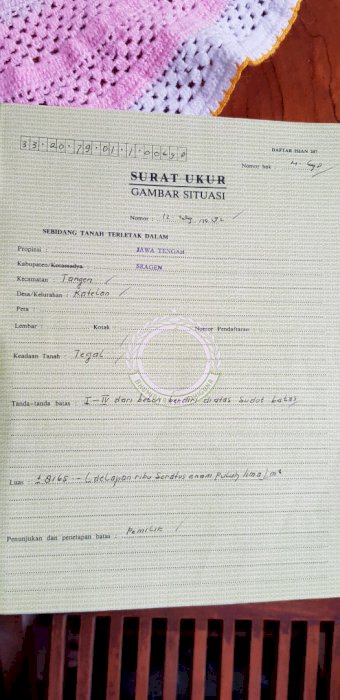 DAFTAR ISIAN 207
Nomor hak :
SURAT UKUR
GAMBAR SITUASI
Nomor :
SEBIDANG TANAH TERLETAK DALAM
Propinsi : JAWA TENGAH
Kabupaten/Kotamadya : SRAGEN
Kecamatan : Tangen
Desa/Kelurahan : Katelan
Peta :
Lembar : Kotak : Nomor Pendaftaran
Keadaan Tanah : Tegal
Tanda-tanda batas : I - IV dari beton berdiri diatas sudut batas
Luas : ± 8165 - (delapan ribu seratus enam puluh lima) m²
Penunjukan dan penetapan batas : Pemilik